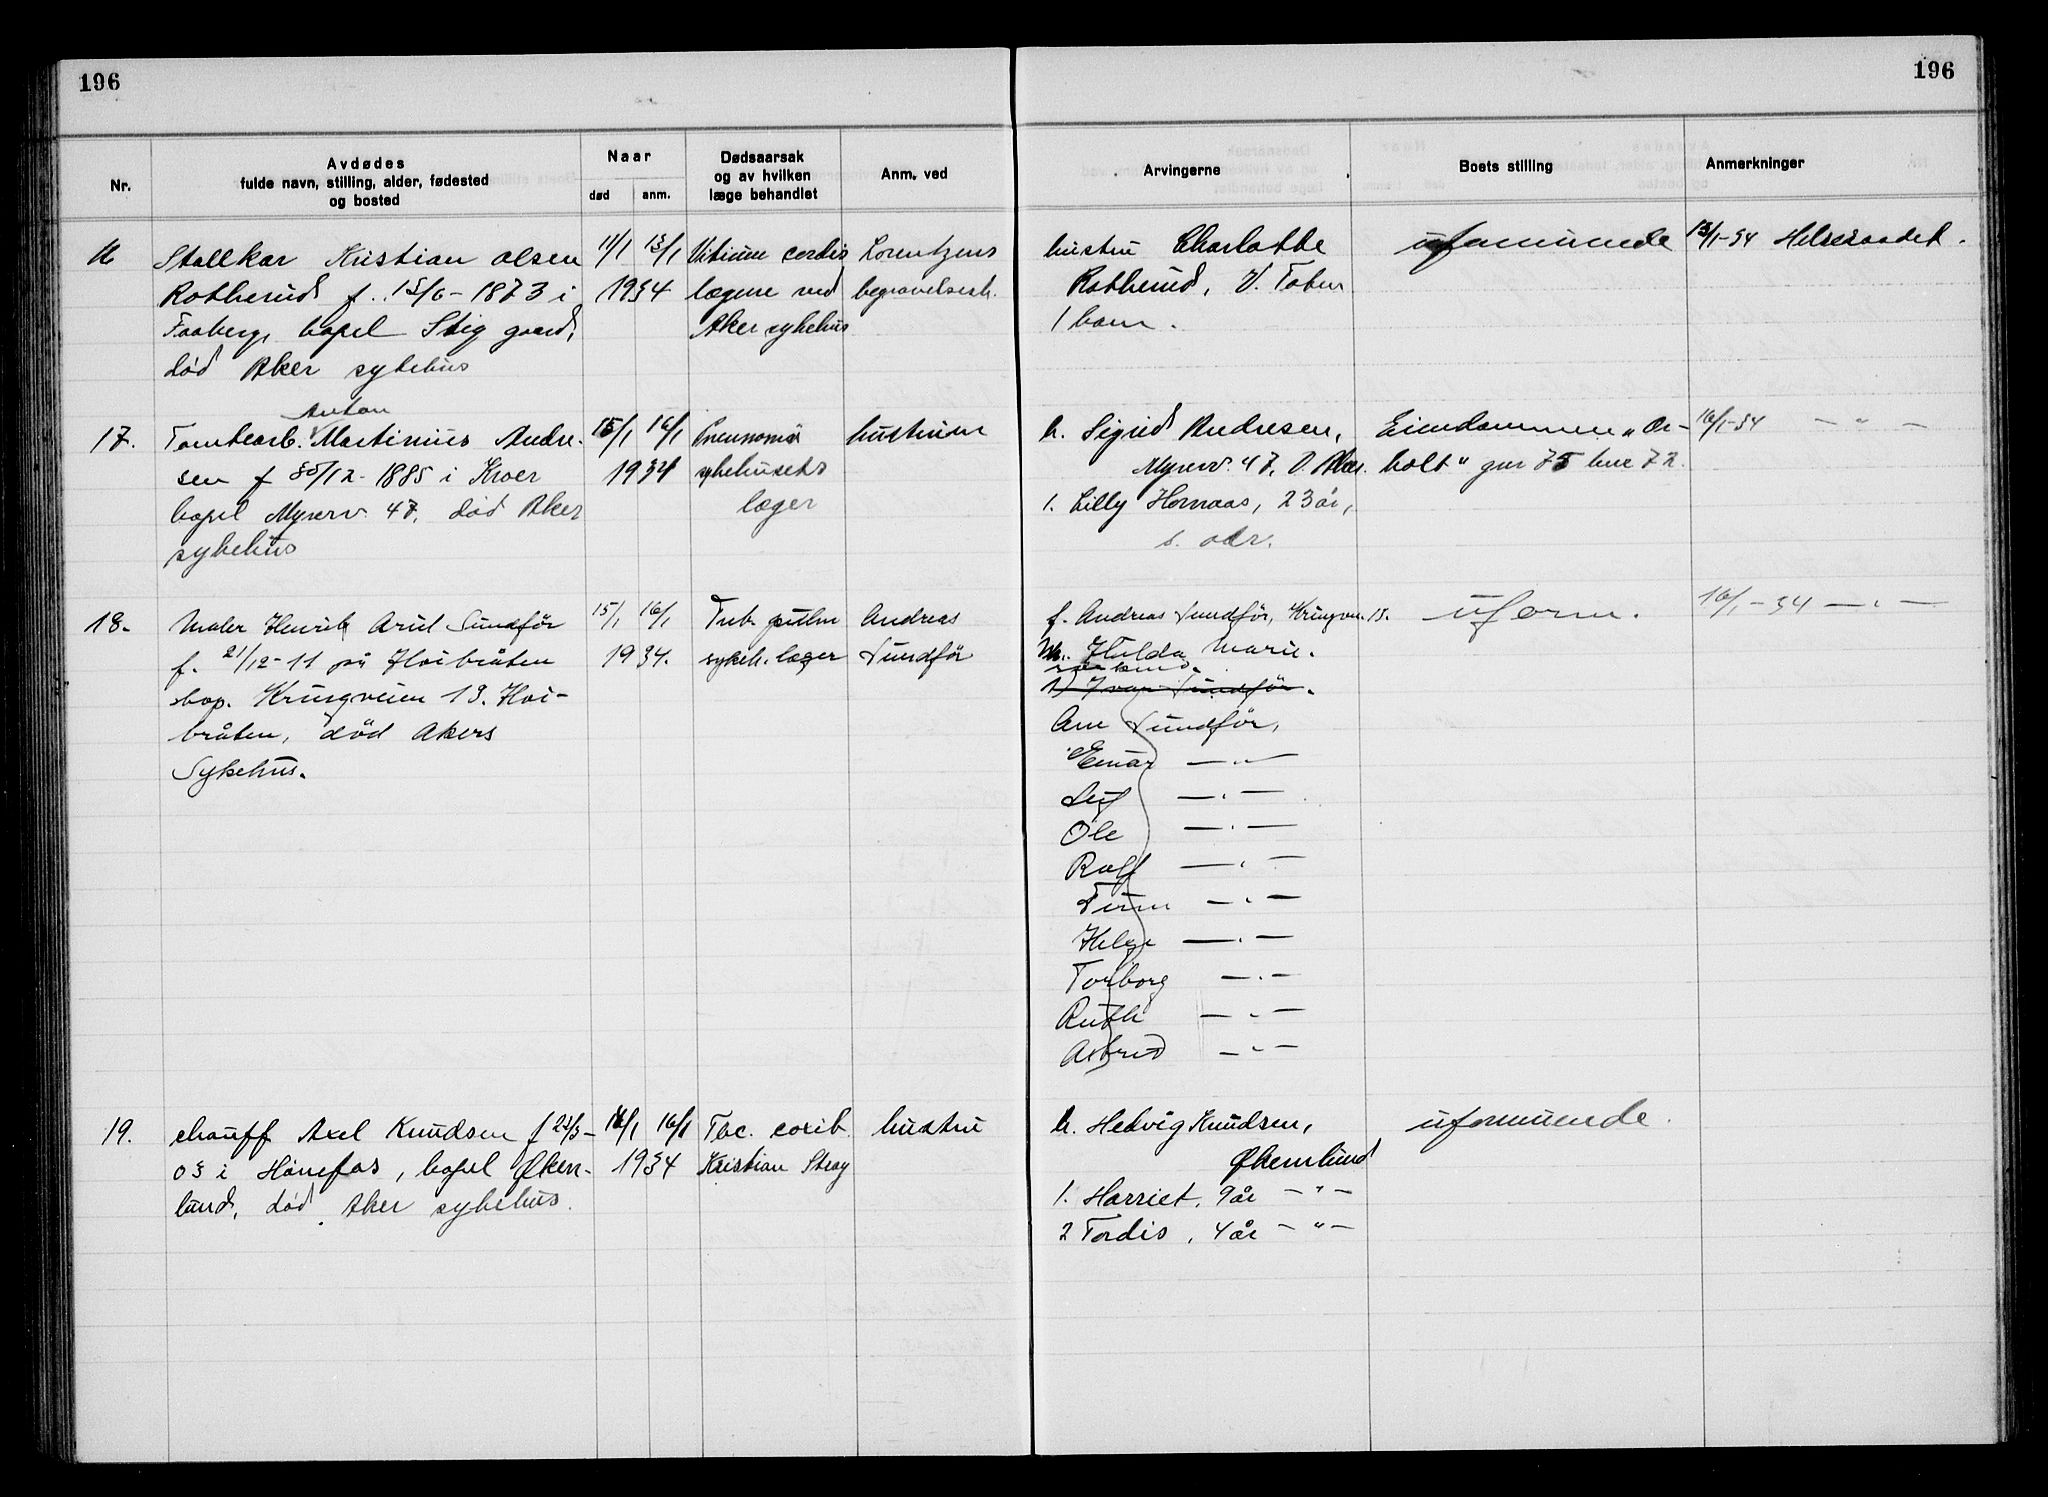 196
196
Nr.
Avdødes
fulde navn, stilling, alder, fødested
og bosted
Naar
død
anm.
Dødsaarsak
og av hvilken
læge behandlet
Anm. ved
Arvingerne
Boets stilling
Anmerkninger
Stallkar Kristian Olsen
Rotherud f. 15/6 - 1873 i
Faaberg, bopel Stig gaard,
død Aker sykehus
11/1 13/1
1934
Vitium cordis
lægene ved
Aker sykehus
Lorentzens
begravelsesb.
hustru Charlotte
Rotherud, V. Toten
1 barn.
uformuende
13/1-34 Helseraadet.
17.
Anton
Tomtearb. Martinius Andre-
sen f 30/12-1885 i Kroer
bopel Myrerv. 47, død Aker
sykehus
15/1 16/1
1934
Pneumoni
sykehusets
læger
hustruen
h. Sigrid Andresen,
Myrerv. 47, V. Aker.
1. Lilly Hornaas, 23 år,
s. adr.
Eiendommen "Or-
holt" gnr 75 bnr 72.
16/1-34 — " —
18.
Maler Henrik Arild Sundför
f. 21/12-11 på Høibråten
bop. Kringveien 13. Høi-
bråten, död Akers
Sykehus.
15/1 16/1
1934.
Tub. pulm
sykeh. læger
Andreas
Sundför
f. Andreas Sundför, Kringvn. 13.
M. Hulda Marie.
søskend.
1) Ivar Sundför.
Arne Sundför,
Einar — " —
Leif — " —
Ole — " —
Rolf — " —
Finn — " —
Helge — " —
Torborg — " —
Ruth — " —
Astrid — " —
uform.
16/1-34 — " —
19.
chauff Axel Knudsen f 23/3-
03 i Hönefos, bopel Øken-
lund, død Aker sykehus.
16/1 16/1
1934
Tbc.
Kristian Stray
hustru
h. Hedvig Knudsen,
Økernlund
1. Harriet, 9 år — " —
2 Tordis, 4 år — " —
uformuende.